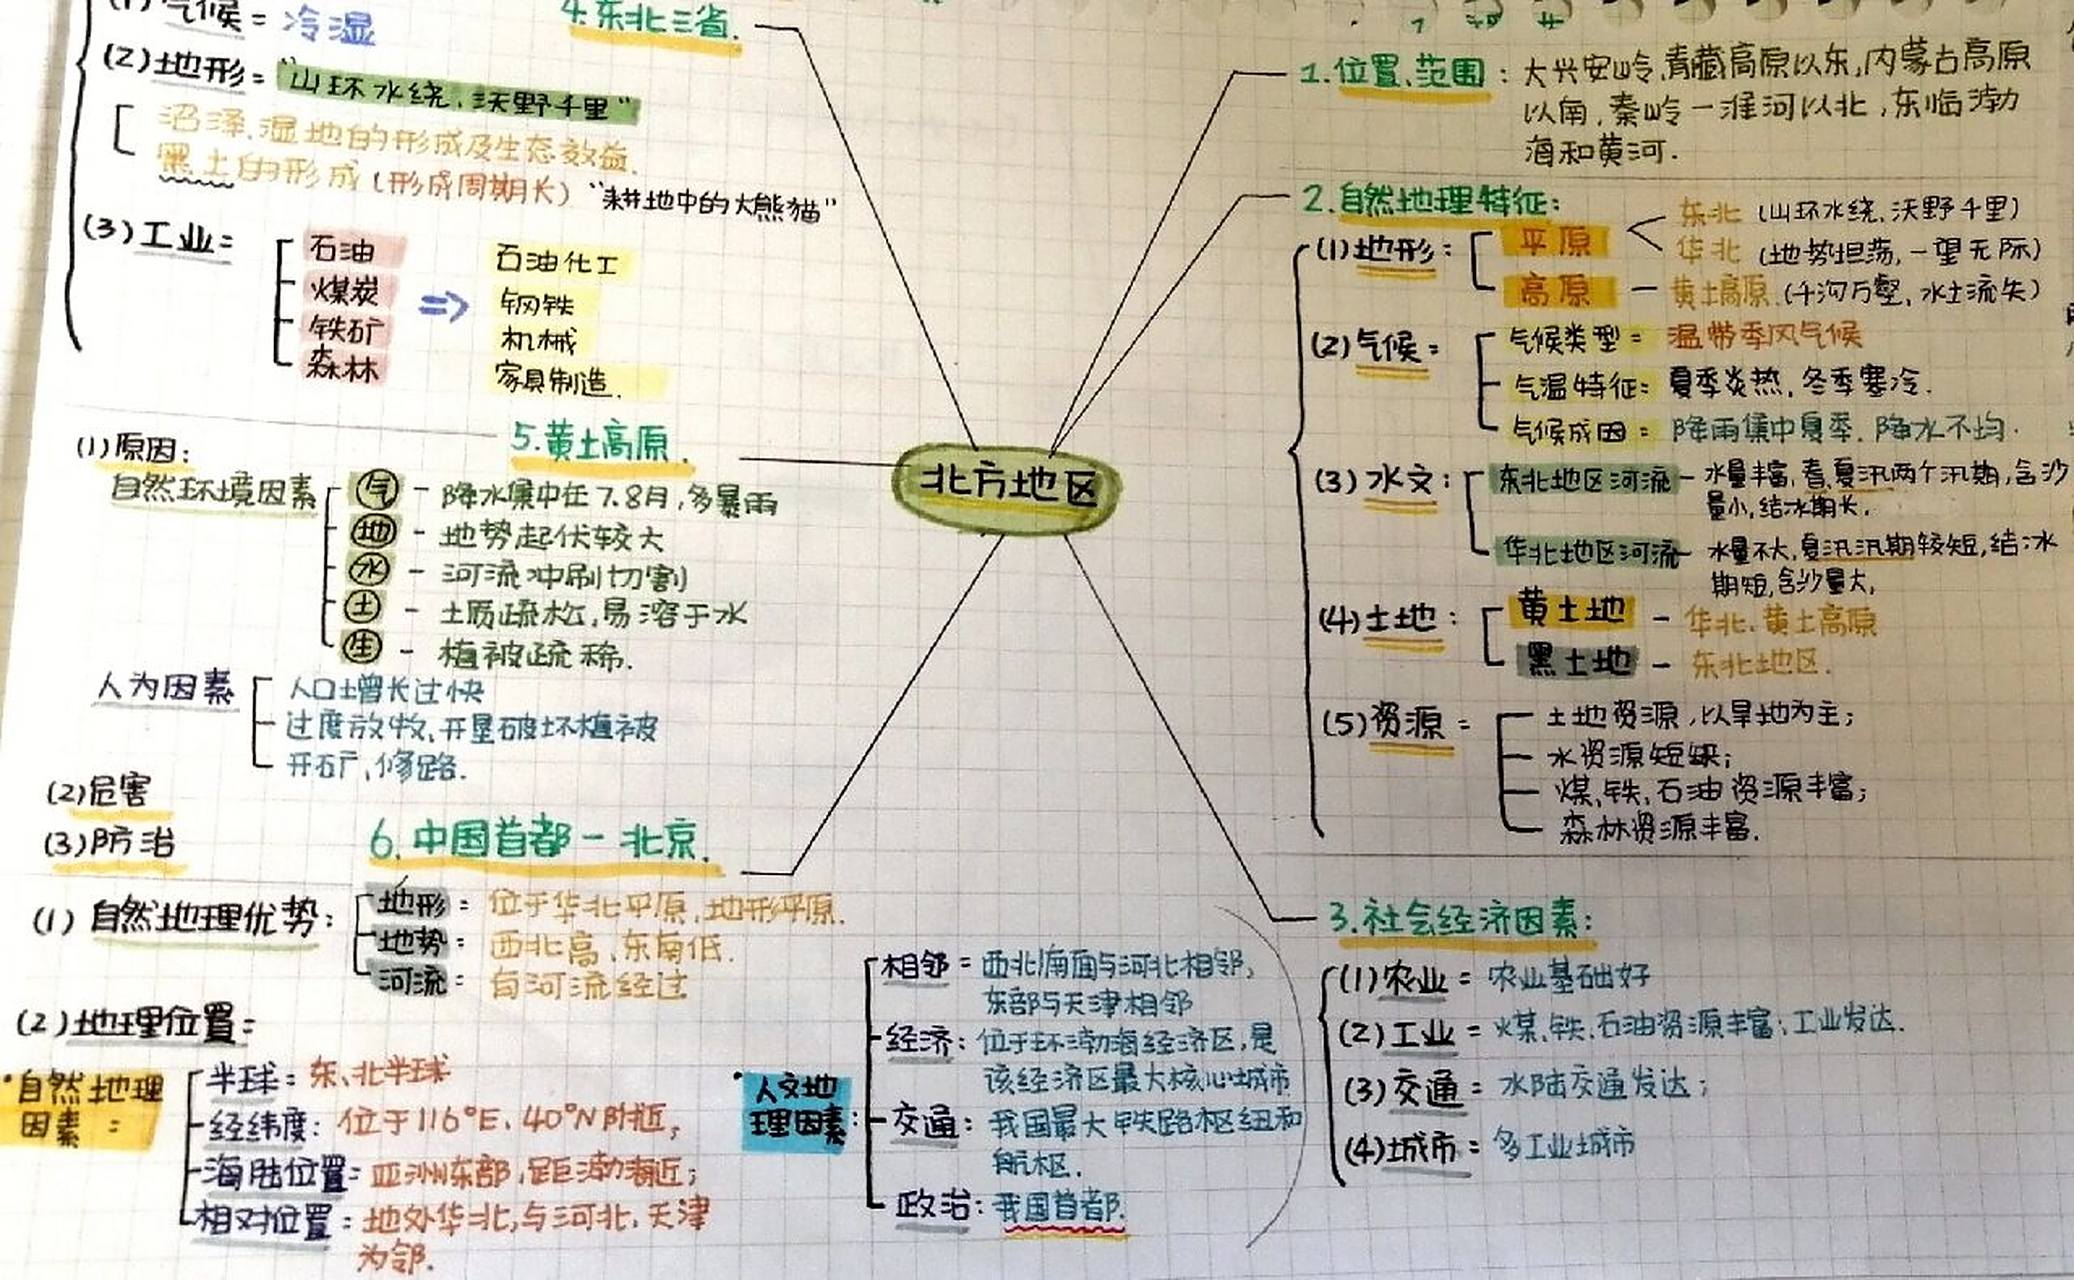 北方地区
1.位置、范围：大兴安岭、青藏高原以东,内蒙古高原
以南,秦岭一淮河以北,东临渤
海和黄河.
2.自然地理特征:
(1)地形:
平原
东北 (山环水绕、沃野千里)
华北 (地势坦荡,一望无际)
高原 — 黄土高原.(千沟万壑,水土流失)
(2)气候=
气候类型= 温带季风气候
气温特征: 夏季炎热,冬季寒冷.
气候成因= 降雨集中夏季.降水不均.
(3)水文:
东北地区河流 — 水量丰富,春,夏汛两个汛期,含沙
量小,结冰期长.
华北地区河流 — 水量不大,夏汛汛期较短,结冰
期短,含沙量大,
(4)土地:
黄土地 — 华北、黄土高原
黑土地 — 东北地区.
(5)资源=
土地资源,以旱地为主;
水资源短缺;
煤,铁,石油资源丰富;
森林资源丰富.
3.社会经济因素:
(1)农业= 农业基础好
(2)工业= 煤、铁、石油资源丰富;工业发达.
(3)交通= 水陆交通发达;
(4)城市= 多工业城市
4.东北三省.
(1)气候= 冷湿
(2)地形= "山环水绕、沃野千里"
沼泽、湿地的形成及生态效益.
黑土的形成(形成周期长) "耕地中的大熊猫"
(3)工业=
石油
煤炭
铁矿
森林
=>
石油化工
钢铁
机械
家具制造.
5.黄土高原.
(1)原因:
自然环境因素
气 — 降水集中在7.8月,多暴雨
地 — 地势起伏较大
水 — 河流冲刷切割
土 — 土质疏松,易溶于水
生 — 植被疏稀.
人为因素
人口增长过快
过度放牧、开垦破坏植被
开矿,修路.
(2)危害
(3)防治
6.中国首都一北京.
(1)自然地理优势:
地形: 位于华北平原,地形平原.
地势: 西北高、东南低.
河流: 有河流经过
(2)地理位置=
自然地理
因素:
半球= 东、北半球
经纬度: 位于116°E、40°N附近;
海陆位置: 亚洲东部,距渤海近;
相对位置: 地处华北,与河北、天津
为邻.
人文地
理因素:
相邻= 西北南面与河北相邻,
东部与天津相邻
经济: 位于环渤海经济区,是
该经济区最大核心城市
交通: 我国最大铁路枢纽和
航枢.
政治: 我国首都.